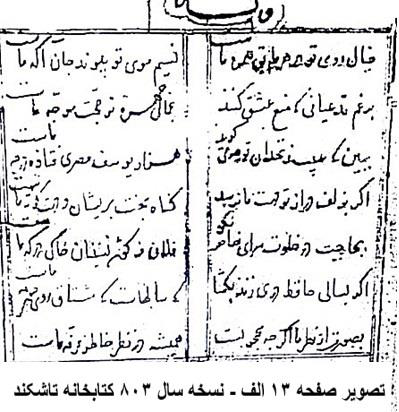 خیال روی تو در هر طریق همره ماست نسیم موی تو پیوند جان آگه ماست
برغم مدعیانی که منع عشق کنند جمال چهره تو حجت موجه ماست
ببین که سیب زنخدان تو چه می گوید هزار یوسف مصری فتاده در چه ماست
اگر بزلف دراز تو دست ما نرسد گناه بخت پریشان و دست کوته ماست
بحاجب در خلوت سرای خاص بگو فلان ز گوشه نشینان خاک درگه ماست
اگر بسالی حافظ دری زند بگشا که سالهاست که مشتاق روی چون مه ماست
بصورت از نظر ما اگر چه محجوبست همیشه در نظر خاطر مرفه ماست
تصویر صفحه ۱۳ الف ـ نسخه سال ۸۰۳ کتابخانه تاشکند